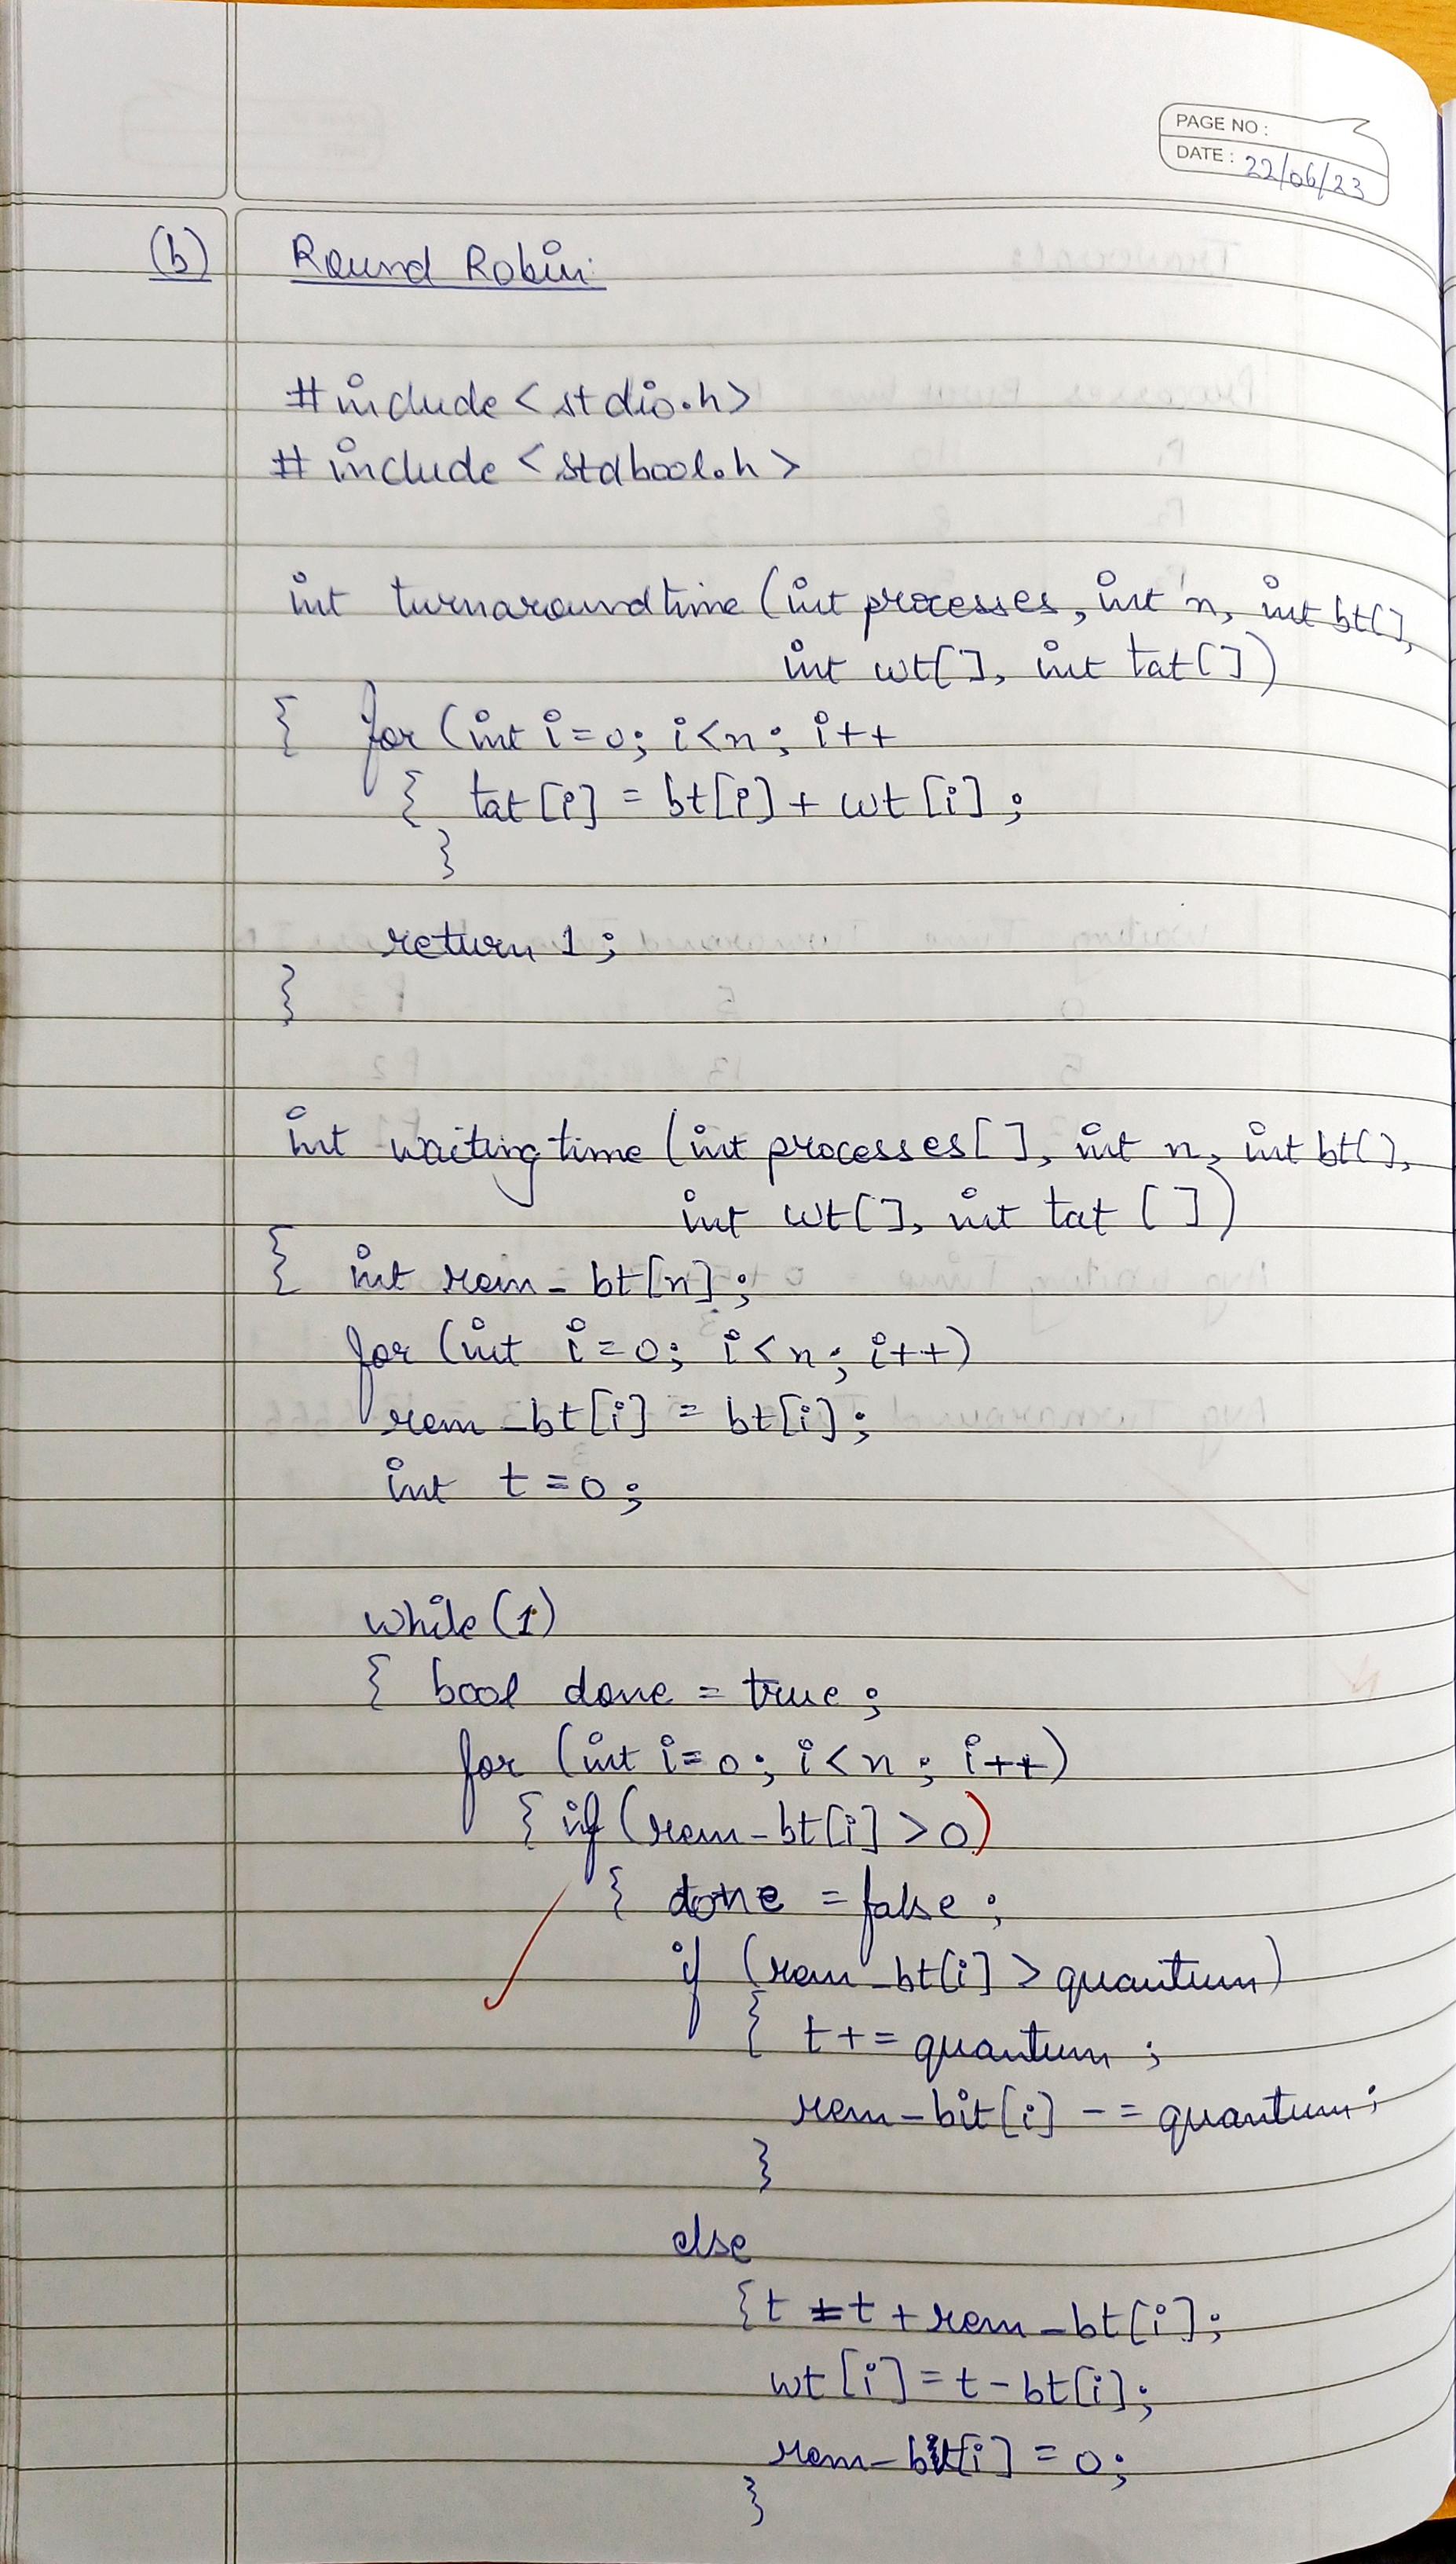 PAGE NO :
DATE : 22/06/23
(b) Round Robin:
#include <stdio.h>
#include <stdbool.h>
int turnaroundtime (int processes, int n, int bt[],
int wt[], int tat[])
{ for (int i=0; i<n; i++
{ tat[i] = bt[i] + wt[i];
}
return 1;
}
int waitingtime (int processes[], int n, int bt[],
int wt[], int tat [])
{ int rem_bt[n];
for (int i=0; i<n; i++)
rem_bt[i] = bt[i];
int t=0;
while(1)
{ bool done = true;
for (int i=0; i<n; i++)
{ if (rem_bt[i] >0)
{ done = false;
if (rem_bt[i] > quantum)
{ t+= quantum;
rem_bit[i] -= quantum;
}
else
{ t = t + rem_bt[i];
wt[i] = t - bt[i];
rem_bt[i] = 0;
}